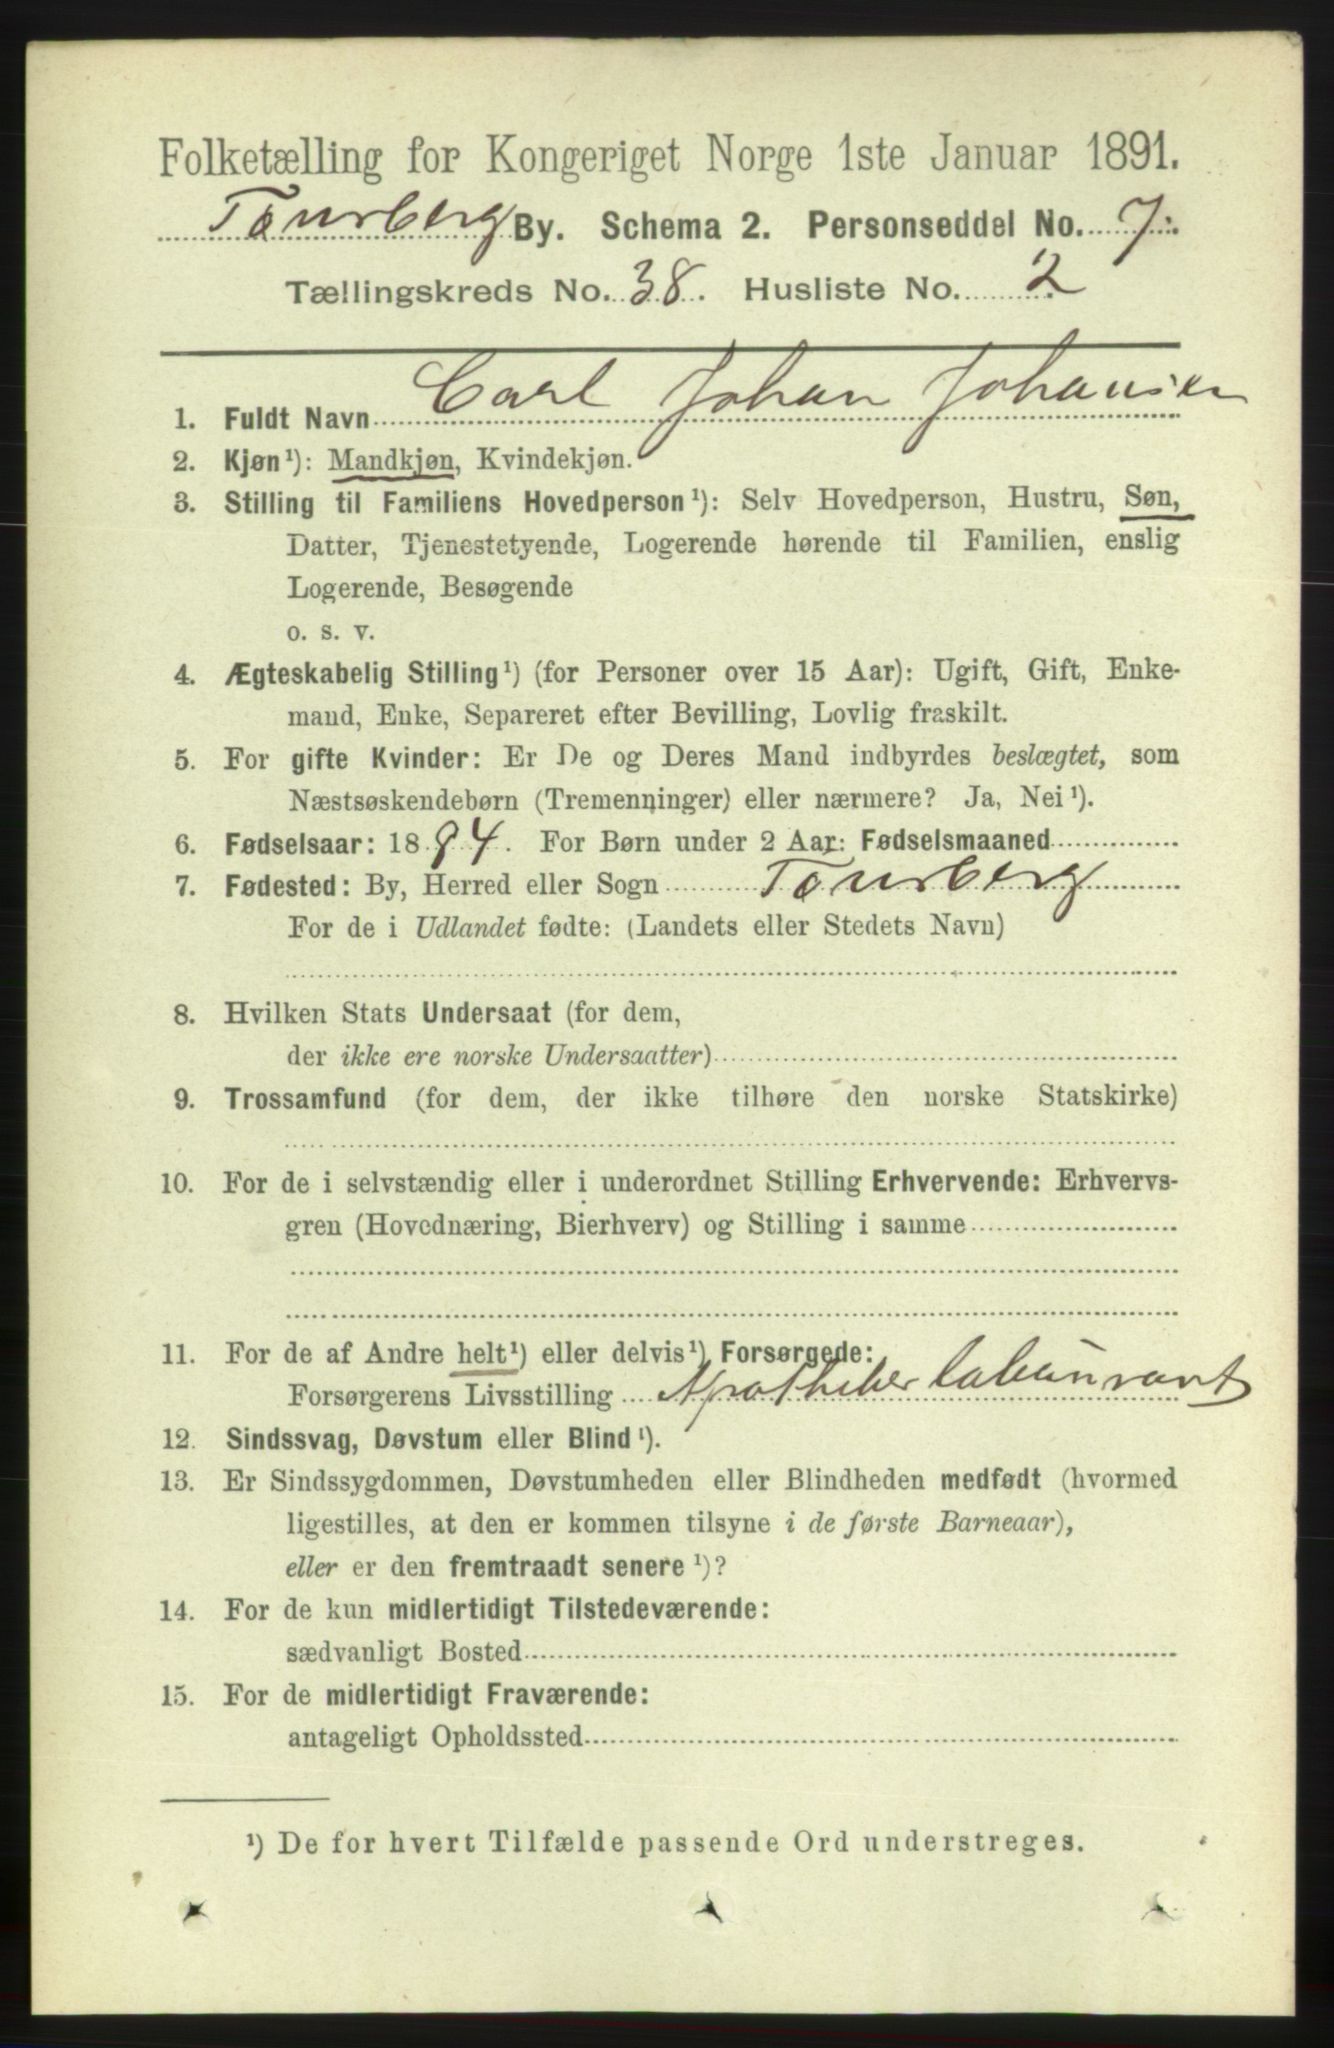 Folketælling for Kongeriget Norge 1ste Januar 1891.
Tønsberg By. Schema 2. Personseddel No. 7.
Tællingskreds No. 38. Husliste No. 2
1. Fuldt Navn Carl Johan Johansen
2. Kjøn¹): Mandkjøn, Kvindekjøn.
3. Stilling til Familiens Hovedperson¹): Selv Hovedperson, Hustru, Søn,
Datter, Tjenestetyende, Logerende hørende til Familien, enslig
Logerende, Besøgende
o. s. v.
4. Ægteskabelig Stilling¹) (for Personer over 15 Aar): Ugift, Gift, Enke-
mand, Enke, Separeret efter Bevilling, Lovlig fraskilt.
5. For gifte Kvinder: Er De og Deres Mand indbyrdes beslægtet, som
Næstsøskendebørn (Tremenninger) eller nærmere? Ja, Nei¹).
6. Fødselsaar: 1884. For Børn under 2 Aar: Fødselsmaaned
7. Fødested: By, Herred eller Sogn Tønsberg
For de i Udlandet fødte: (Landets eller Stedets Navn)
8. Hvilken Stats Undersaat (for dem,
der ikke ere norske Undersaatter)
9. Trossamfund (for dem, der ikke tilhøre den norske Statskirke)
10. For de i selvstændig eller i underordnet Stilling Erhvervende: Erhvervs-
gren (Hovednæring, Bierhverv) og Stilling i samme
11. For de af Andre helt¹) eller delvis¹) Forsørgede:
Forsørgerens Livsstilling Apotheker
12. Sindssvag, Døvstum eller Blind¹).
13. Er Sindssygdommen, Døvstumheden eller Blindheden medfødt (hvormed
ligestilles, at den er kommen tilsyne i de første Barneaar),
eller er den fremtraadt senere¹)?
14. For de kun midlertidigt Tilstedeværende:
sædvanligt Bosted
15. For de midlertidigt Fraværende:
antageligt Opholdssted
¹) De for hvert Tilfælde passende Ord understreges.